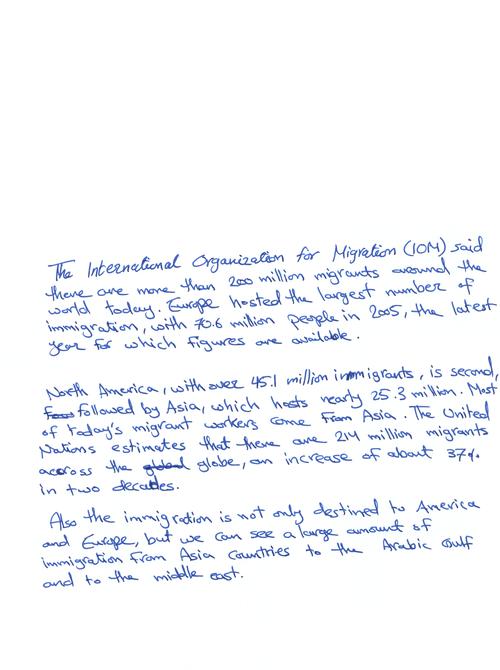 The International Organization for Migration (IOM) said
there are more than 200 million migrants around the
world today. Europe hosted the largest number of
immigration, with 70.6 million people in 2005, the latest
year for which figures are available.
North America, with over 45.1 million immigrants, is second,
followed by Asia, which hosts nearly 25.3 million. Most
of today's migrant workers come from Asia. The United
Nations estimates that there are 214 million migrants
across the globe, an increase of about 37%
in two decades.
Also the immigration is not only destined to America
and Europe, but we can see a large amount of
immigration from Asia countries to the Arabic Gulf
and to the middle east.